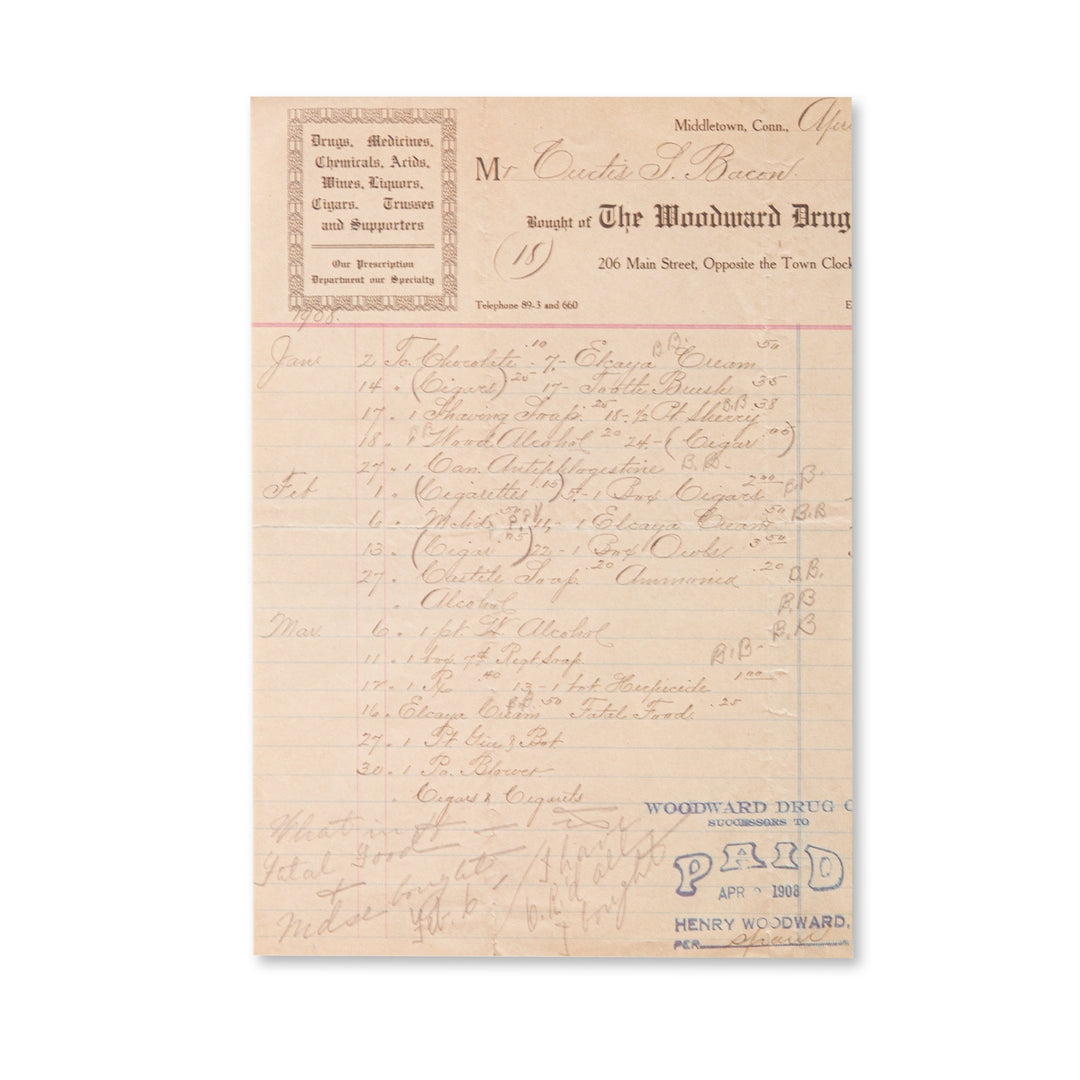 Drugs, Medicines,
Chemicals, Acids,
Wines, Liquors,
Cigars. Trusses
and Supporters
Our Prescription
Department our Specialty
Middletown, Conn., Apr
Mr Curtis S. Bacon
Bought of The Woodward Drug
(18)
206 Main Street, Opposite the Town Clock
Telephone 89-3 and 660
E
1908.
Jan 2 To Chocolate .10 7- Elcaya Cream B.B. 50
14 " (Cigars) 25 17- Tooth Brush 35
17 . 1 Shaving Soap. 25 18- ½ Pt Sherry B.B. 38
18 . 1 Wood Alcohol 20 24- (Cigar 05)
27 . 1 Can. Antiphlogestine B.B.
Feb 1 . (Cigarettes .15) 5- 1 Box Cigars 2.00 B.B.
6 . Mdse 50 11, - 1 Elcaya Cream 50 B.B
13 . (Cigar 05) 22 - 1 Box Owls 3 50
27 . Castile Soap. 20 Ammonia .20 B.B.
" Alcohol B.B
Mar. 6 . 1 pt. W. Alcohol B.B
11 . 1 box Soap B.B-
12 . 1 Rx 40 13 - 1 bot. Herpicide 1.00
16 . Elcaya Cream B.B. 50 Fatal Food. .25
27 . 1 Pt Gin & Bot
30 . 1 Po. Blower
" Cigars & Cigarets
What is
Fatal Food
+
Mdse bought
Feb. 6
I have
O.K'd all
I bought
WOODWARD DRUG C
SUCCESSORS TO
PAID
APR 1908
HENRY WOODWARD,
PER